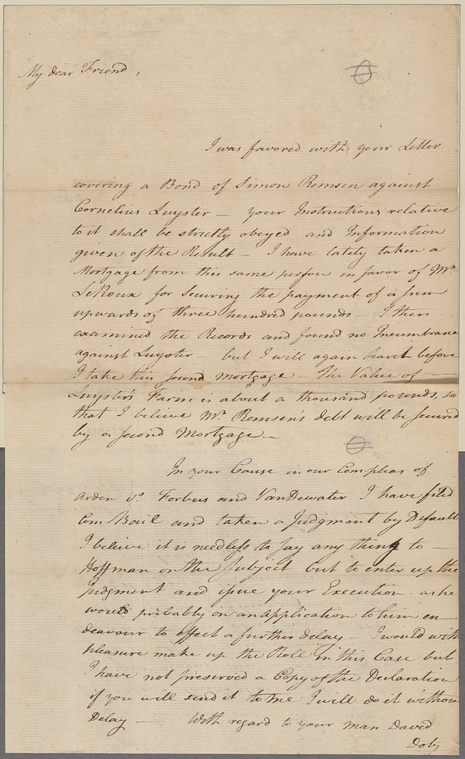 My dear Friend,
I was favored with your Letter
covering a Bond of Simon Remsen against
Cornelius Luyster — your Instructions relative
to it shall be strictly obeyed and Information
given of the Result — I have lately taken a
Mortgage from this same person in favor of Mr.
LeRoux for securing the payment of a sum
upwards of three hundred pounds — I then
examined the Records and found no Incumbrance
against Luyster — but I will again search before
I take this second mortgage — The Value of —
Luyster's Farm is about a thousand pounds, so
that I beleive Mr. Remsen's debt will be secured
by a second Mortgage —
In your Cause in our Compleas of
Arden vs. Forbus and VanDewater I have filed
Com Bail and taken a Judgment by Default
I beleive it is needless to say any thing to —
Hoffman on the subject but to enter up the
Judgment and issue your Execution as he
would probably on an application to him en-
deavour to effect a further delay — I would with
pleasure make up the Roll in this Case but
I have not preserved a Copy of the Declaration
if you will send it to me I will do it without
Delay — With regard to your man David
Doby